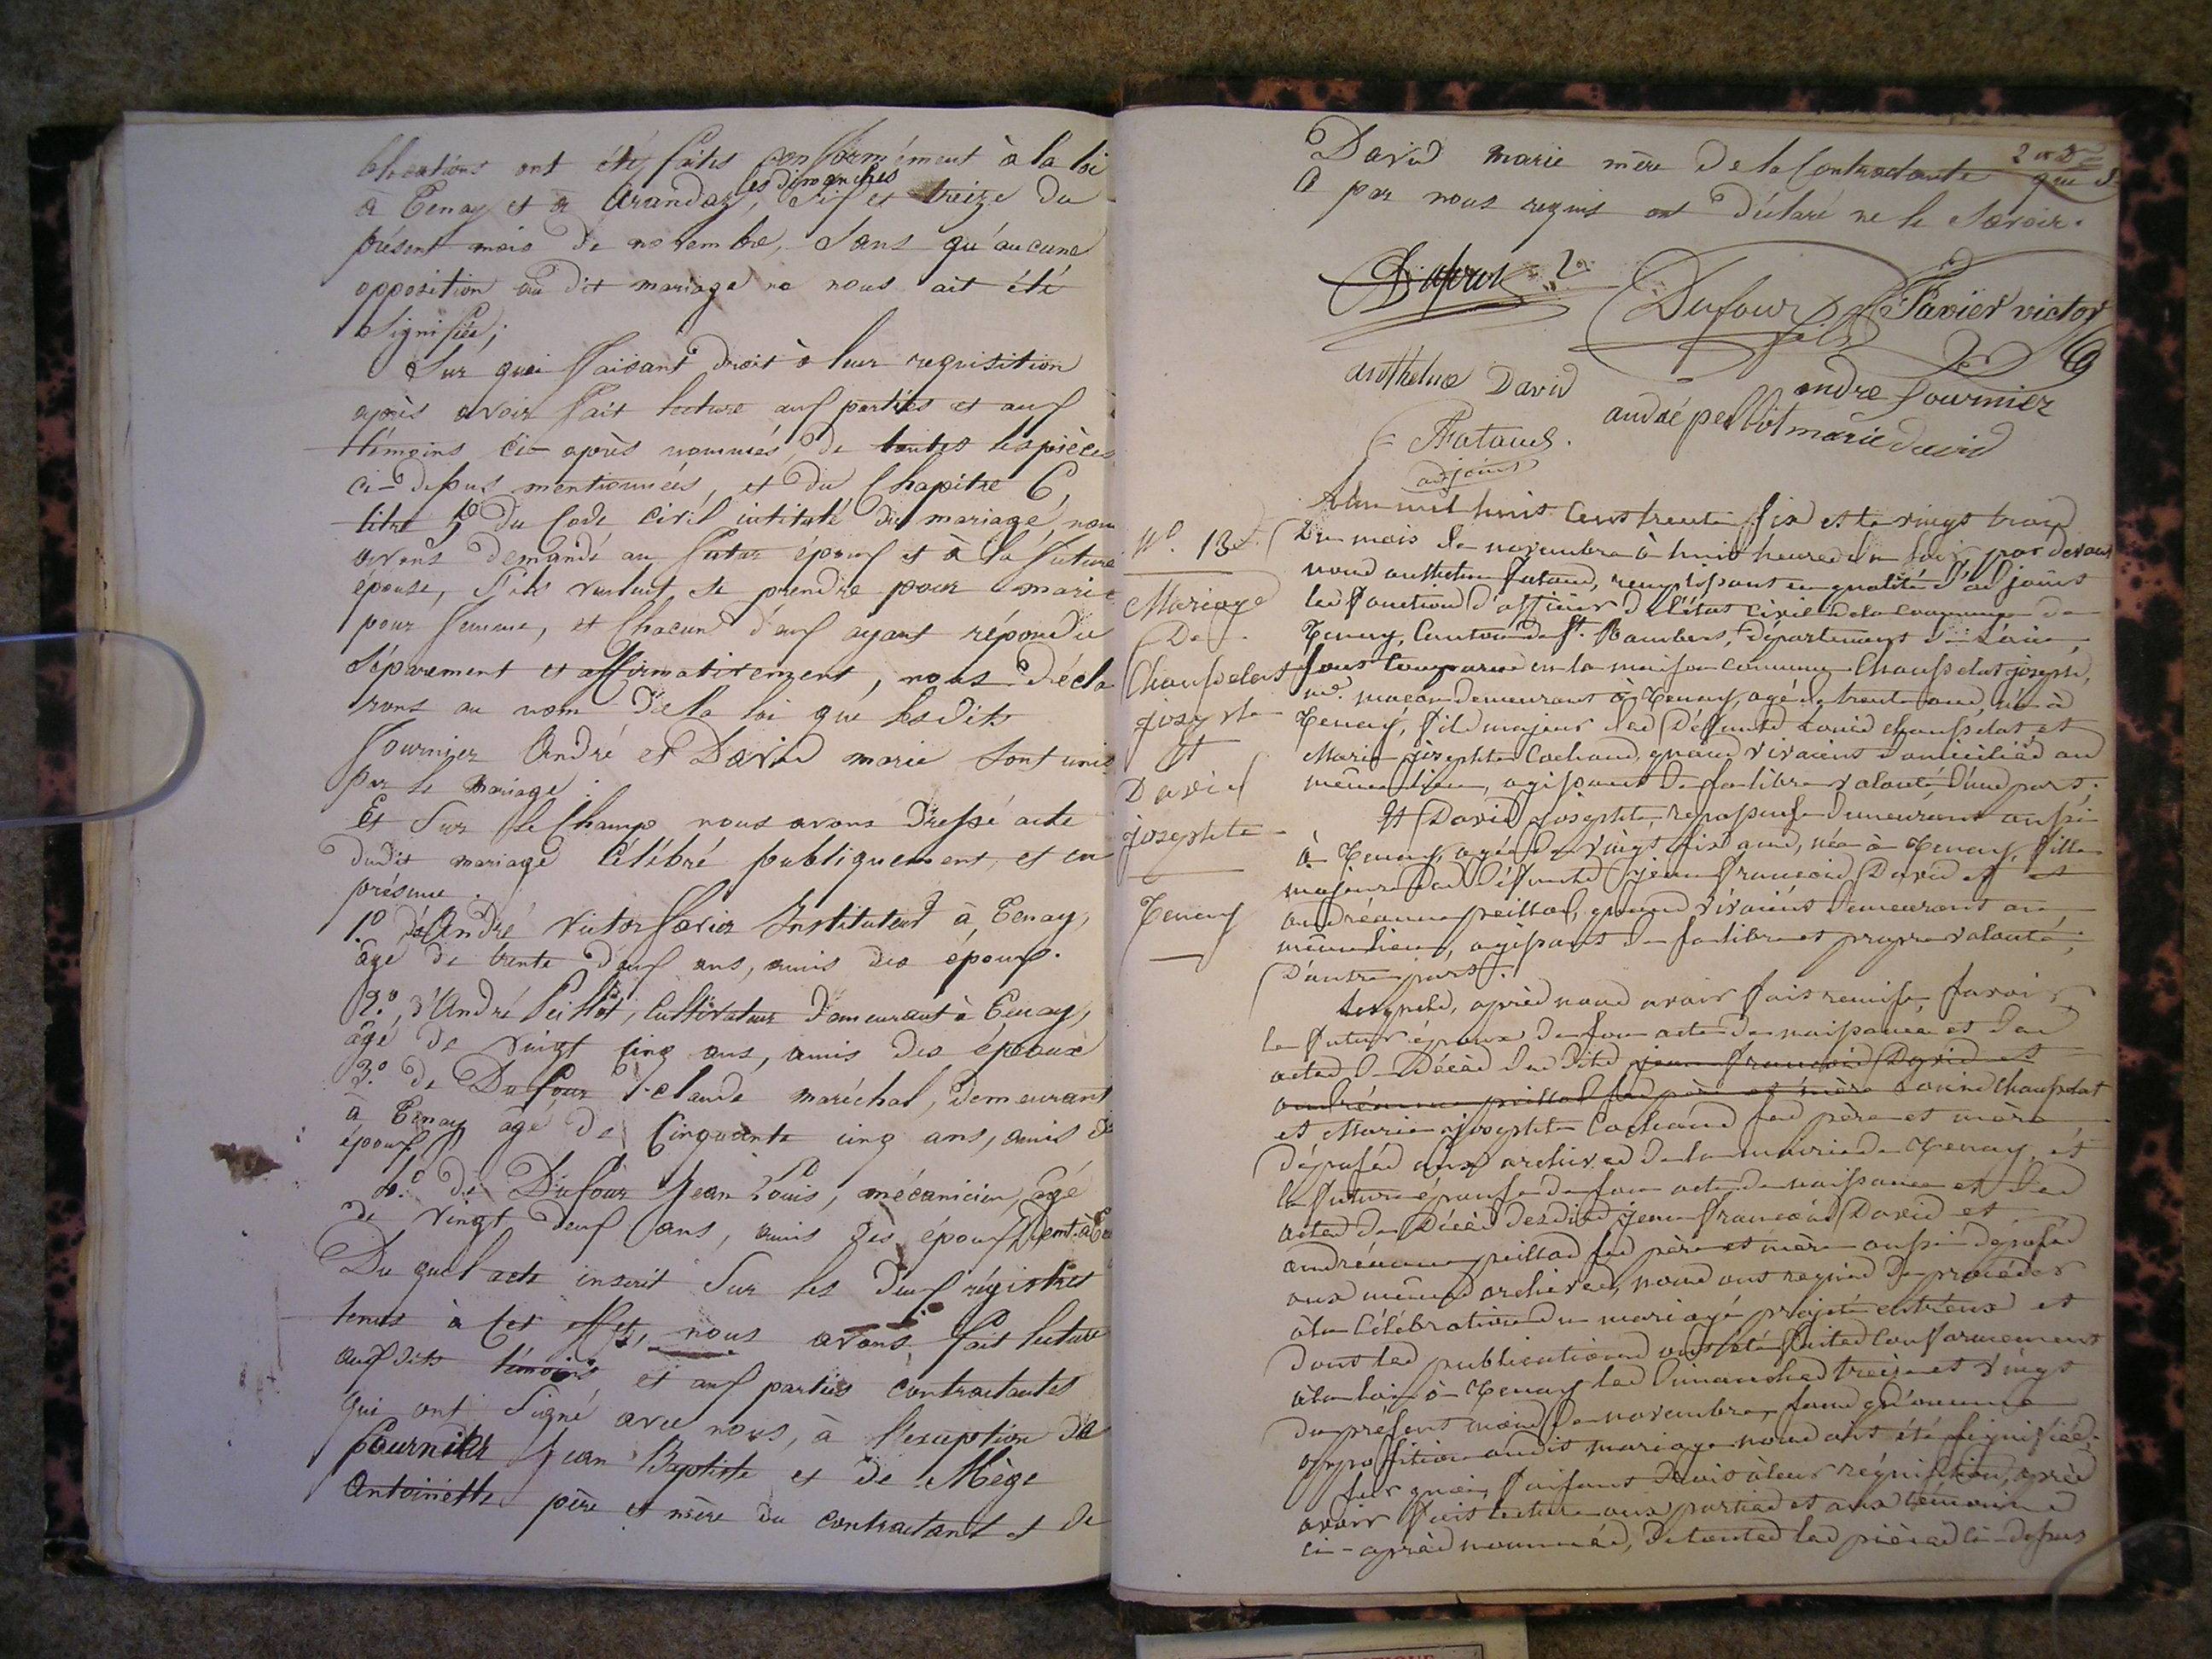 blications ont été faites conformément à la loi
à Tenay et à Arandaz, les dimanches six et treize du
présent mois de novembre, sans qu'aucune
opposition au dit mariage ne nous ait été
signifiée;
Sur quoi faisant droit à leur requisition
après avoir fait lecture aux parties et aux
témoins ci-après nommés, de toutes les pièces
ci-dessus mentionnées, et du Chapitre 6,
titre 5 du Code Civil intitulé du mariage, nous
avons demandé au futur époux et à la future
épouse, s'ils veulent se prendre pour mari et
pour femme, et Chacun d'eux ayant répondu
séparement et affirmativement, nous décla
rons au nom de la loi que lesdits
Fournier André et David marie sont unis
par le mariage.
Et sur le Champ nous avons dressé acte
dudit mariage Célébré publiquement, et en
présence.
1.º d'André Victor Favier Instituteur à Tenay,
âgé de trente deux ans, amis des époux.
2.º, d'André Peillot, Cultivateur demeurant à Tenay,
âgé de vingt cinq ans, amis des époux
3.º de Dufour Claude maréchal, demeurant
à Tenay âgé de Cinquante cinq ans, amis des
époux
4.º de Dufour Jean Louis, mécanicien, âgé
de vingt deux ans, amis des époux, demt. à
Du quel acte inscrit sur les deux régistres
tenus à cet effet, nous avons fait lecture
aux dits témoins et aux parties contractantes
qui ont signé avec nous, à l'exception de
Fournier Jean Baptiste et de Mège
Antoinette père et mère du contractant et de
David marie mère de la Contractante que de
a par nous requis ont déclaré ne le savoir.
Dufour
Dufour fils Favier victor
anthelme David andre fournier
andré peillot marie david
Fataud
adjoint
L'an mil huit Cent trente six et le vingt trois
Nº. 13
du mois de novembre à huit heures du soir, par devant
nous anthelme fataud, remplissant en qualité d'adjoint
Mariage
les fonctions d'officier de l'état civil de la commune de
De
Tenay, Canton de St. Rambert, département de L'ain,
Chausselat
sont comparus en la maison commune Chausselat joseph,
joseph
md. maçon demeurant à Tenay, agé de trente ans, né à
Et
Tenay, fils majeur des défunts Louis chausselat et
David
Marie josephte Cochand, quand vivaient domiciliés au
josephte
même lieu, agissant de sa libre volonté, d'une part;
Tenay
Et David josephte repasseuse demeurant aussi
à Tenay, agée de vingt six ans, née à Tenay, fille
majeure des défunts jean françois David et et
andréanne peillod, quand vivaient demeurant au
même lieu, agissant de sa libre et propre volonté,
D'autre part.
Lesquels, après nous avoir fait remise, savoir
le futur époux de son acte de naissance et des
actes de Décès des dits jean françois David et
andréanne peillod ses père et mère Louis chausselat
et Marie josephte Cochand ses père et mère
déposés aux archives de la mairie de Tenay, et
la future épouse de son acte de naissance et des
actes de Décès desdits jean françois David et
andréanne peillod ses père et mère aussi déposés
aux mêmes archives, nous ont requis de procéder
à la Célébration du mariage projeté entr'eux et
dont les publications ont été faites conformement
à la loi à Tenay les dimanches treize et vingt
du présent mois de novembre, sans qu'aucune
opposition audit mariage nous ait été signifiée.
sur quoi, faisant droit à leur réquisition, après
avoir fait lecture aux parties et aux témoins
ci-après nommés, de toutes les pièces ci-dessus